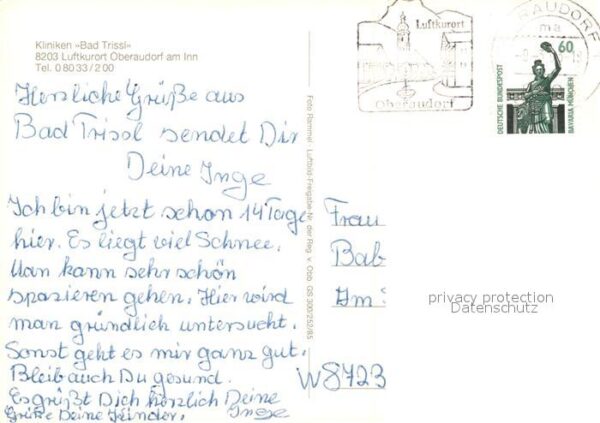 Kliniken »Bad Trissl«
8203 Luftkurort Oberaudorf am Inn
Tel. 0 80 33 / 2 00
Herzliche Grüße aus
Bad Trissl sendet Dir
Deine Inge
Ich bin jetzt schon 14 Tage
hier. Es liegt viel Schnee.
Man kann sehr schön
spazieren gehen. Hier wird
man gründlich untersucht.
Sonst geht es mir ganz gut.
Bleib auch Du gesund.
Es grüßt Dich herzlich Deine
Grüße Deine Kinder. Inge
Foto Rammel · Luftbild-Freigabe-Nr. der Reg. v. Obb. GS 300/252/85
Luftkurort
Oberaudorf
RAUDORF
ma
60
DEUTSCHE BUNDESPOST
BAVARIA MÜNCHEN
Frau
Bab
Im
W8723
privacy protection
Datenschutz